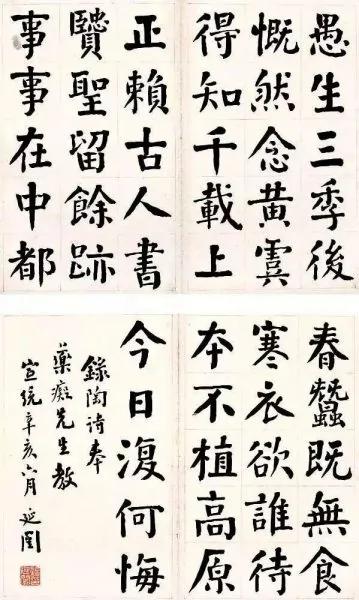 愚生三季後
慨然念黄虞
得知千載上
正賴古人書
贒聖留餘跡
事事在中都
春蠶既無食
寒衣欲誰待
夲不植高原
今日復何悔
錄陶詩奉
藥癡先生教
宣統辛亥六月 延闓